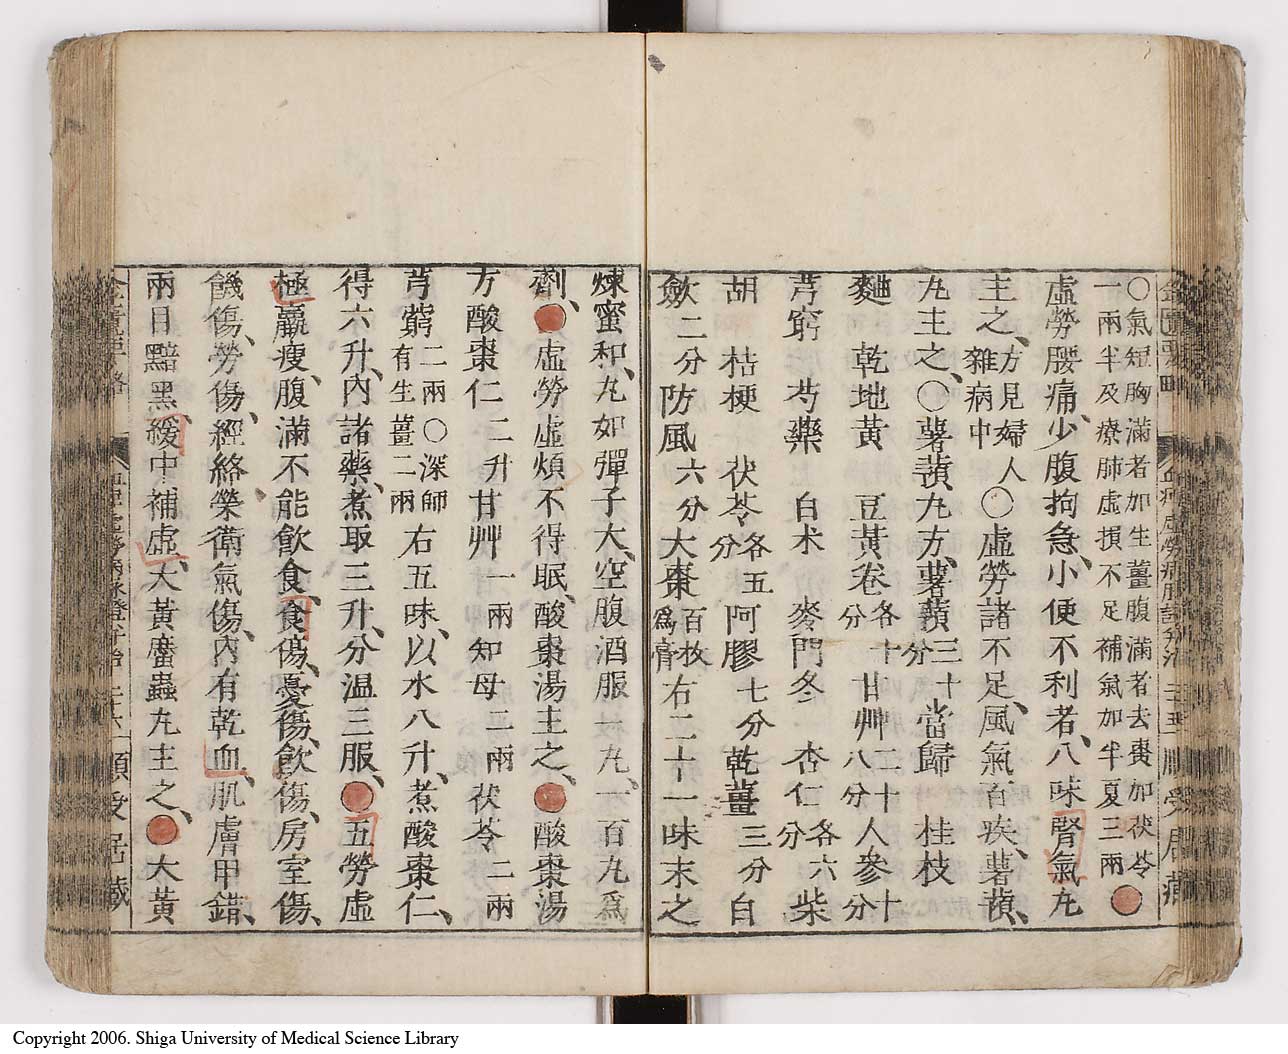 ○氣短胸滿者加生薑腹滿者去棗加茯苓
一兩半及療肺虛損不足補氣加半夏三兩
虛勞腰痛、少腹拘急、小便不利者、八味腎氣丸
主之、方見婦人雜病中○虛勞諸不足、風氣百疾、薯蕷、
丸主之、○薯蕷丸方、薯蕷三十分當歸 桂枝
麴 乾地黃 豆黃卷各十分甘艸二十八分人參十分
芎窮 芍藥 白朮 麥門冬 杏仁各六分柴
胡 桔梗 茯苓各五分阿膠七分乾薑三分白
歛二分防風六分大棗百枚爲膏右二十一味末之
煉蜜和、丸如彈子大、空腹酒服一丸、一百丸爲
劑、虛勞虛煩不得眠、酸棗湯主之、酸棗湯
方酸棗仁二升甘艸一兩知母二兩茯苓二兩
芎藭二兩○深師有生薑二兩右五味、以水八升、煮酸棗仁、
得六升、內諸藥、煮取三升、分温三服、五勞虛
極羸瘦、腹滿不能飲食、食傷、憂傷、飲傷、房室傷、
饑傷、勞傷、經絡榮衛氣傷、內有乾血、肌膚甲錯、
兩目黯黑、緩中補虛、大黃䗪蟲丸主之、大黃
Copyright 2006. Shiga University of Medical Science Library